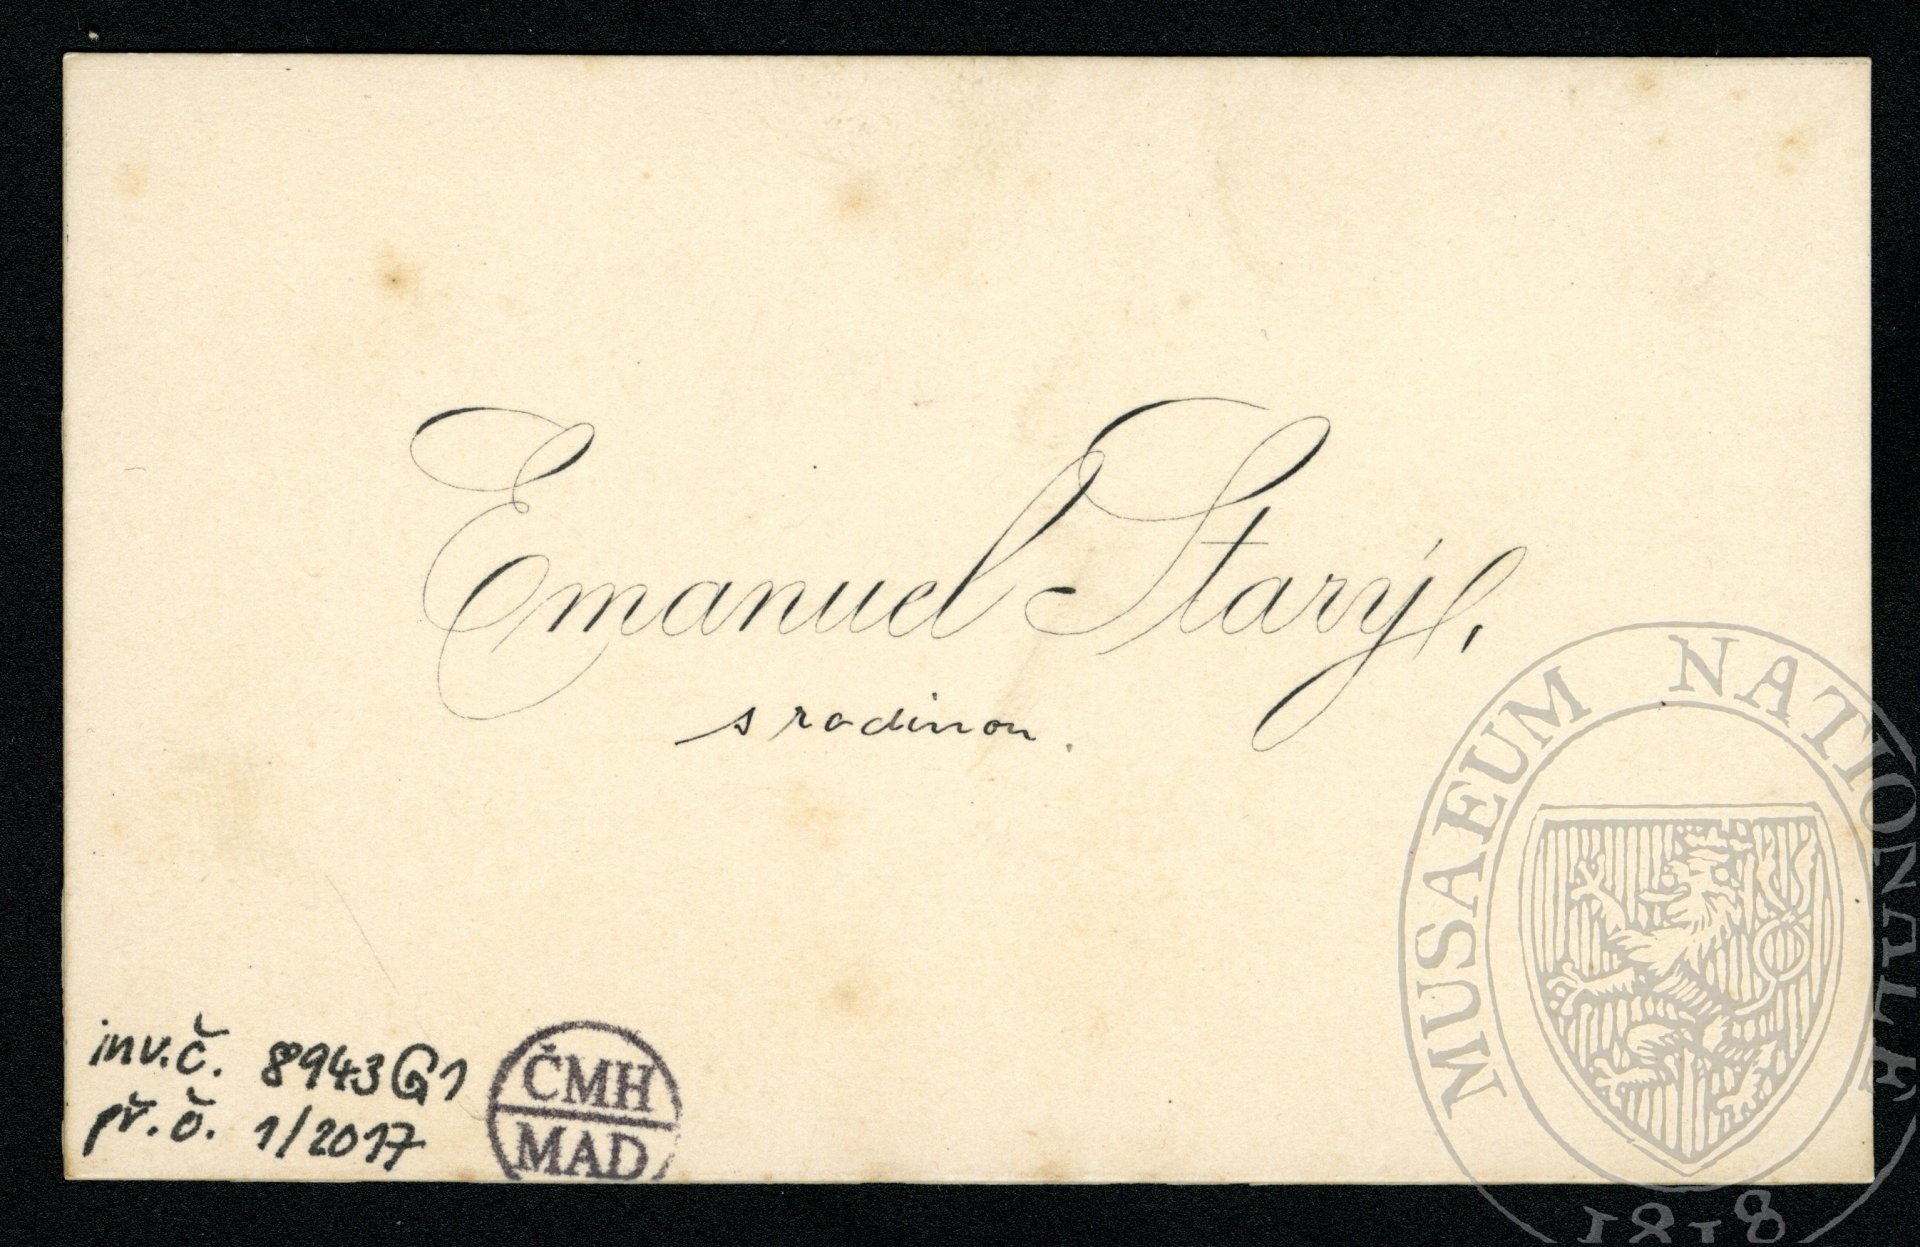 Emanuel Starý,
s rodinou.
inv.č. 8943G1
př.č. 1/2017
ČMH
MAD
MUSAEUM NATIONALE
1818